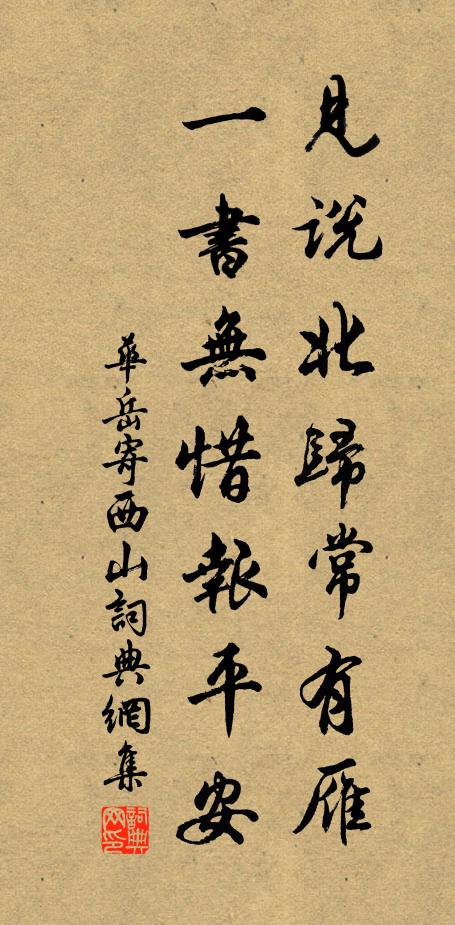 見説北歸常有雁
一書無惜報平安
華岳寄西山詞典網集
詞典网印